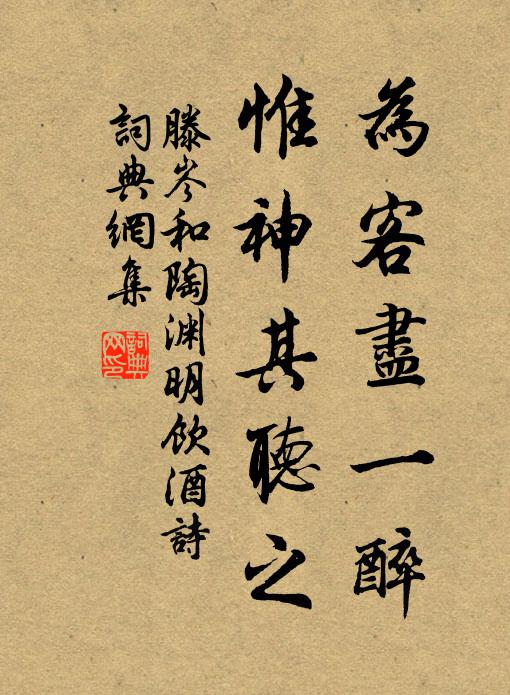 為客盡一醉
惟神其聽之
滕岑和陶渊明飲酒詩
詞典網集
詞典網印